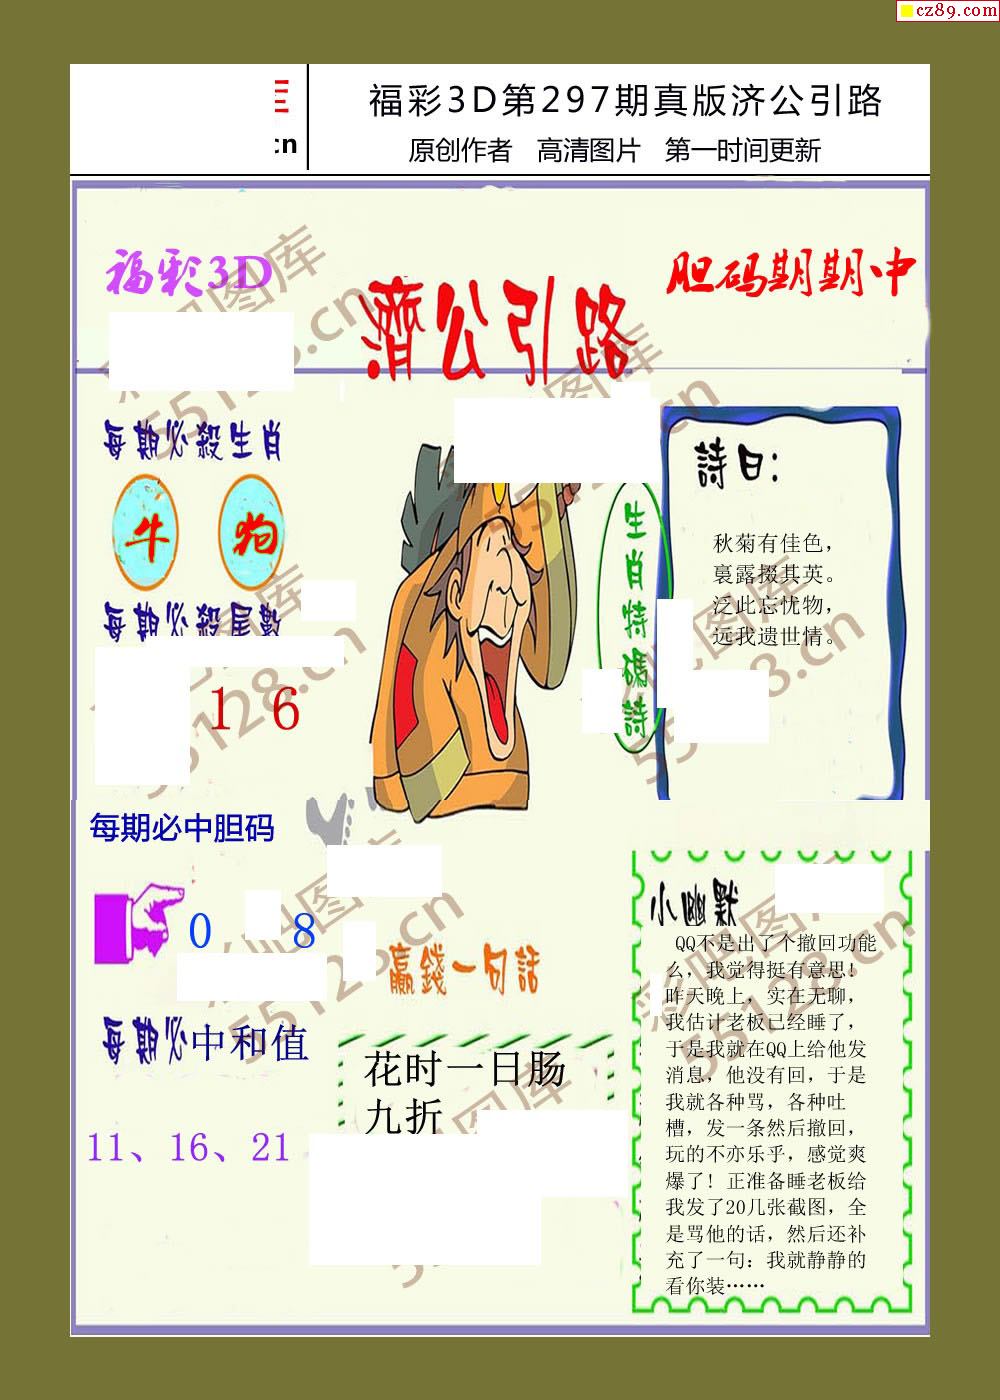 cz89.com
福彩3D第297期真版济公引路
:n
原创作者 高清图片 第一时间更新
福彩3D
胆码期期中
濟公引路
每期必殺生肖
牛 狗
每期必殺尾數
1 6
生肖特碼詩
詩曰：
秋菊有佳色，
裛露掇其英。
泛此忘忧物，
远我遗世情。
每期必中胆码
0 8
每期必中和值
11、16、21
贏錢一句話
花时一日肠
九折
小幽默
QQ不是出了个撤回功能
么，我觉得挺有意思！
昨天晚上，实在无聊，
我估计老板已经睡了，
于是我就在QQ上给他发
消息，他没有回，于是
我就各种骂，各种吐
槽，发一条然后撤回，
玩的不亦乐乎，感觉爽
爆了！正准备睡老板给
我发了20几张截图，全
是骂他的话，然后还补
充了一句：我就静静的
看你装……
彩吧图库
55128.cn